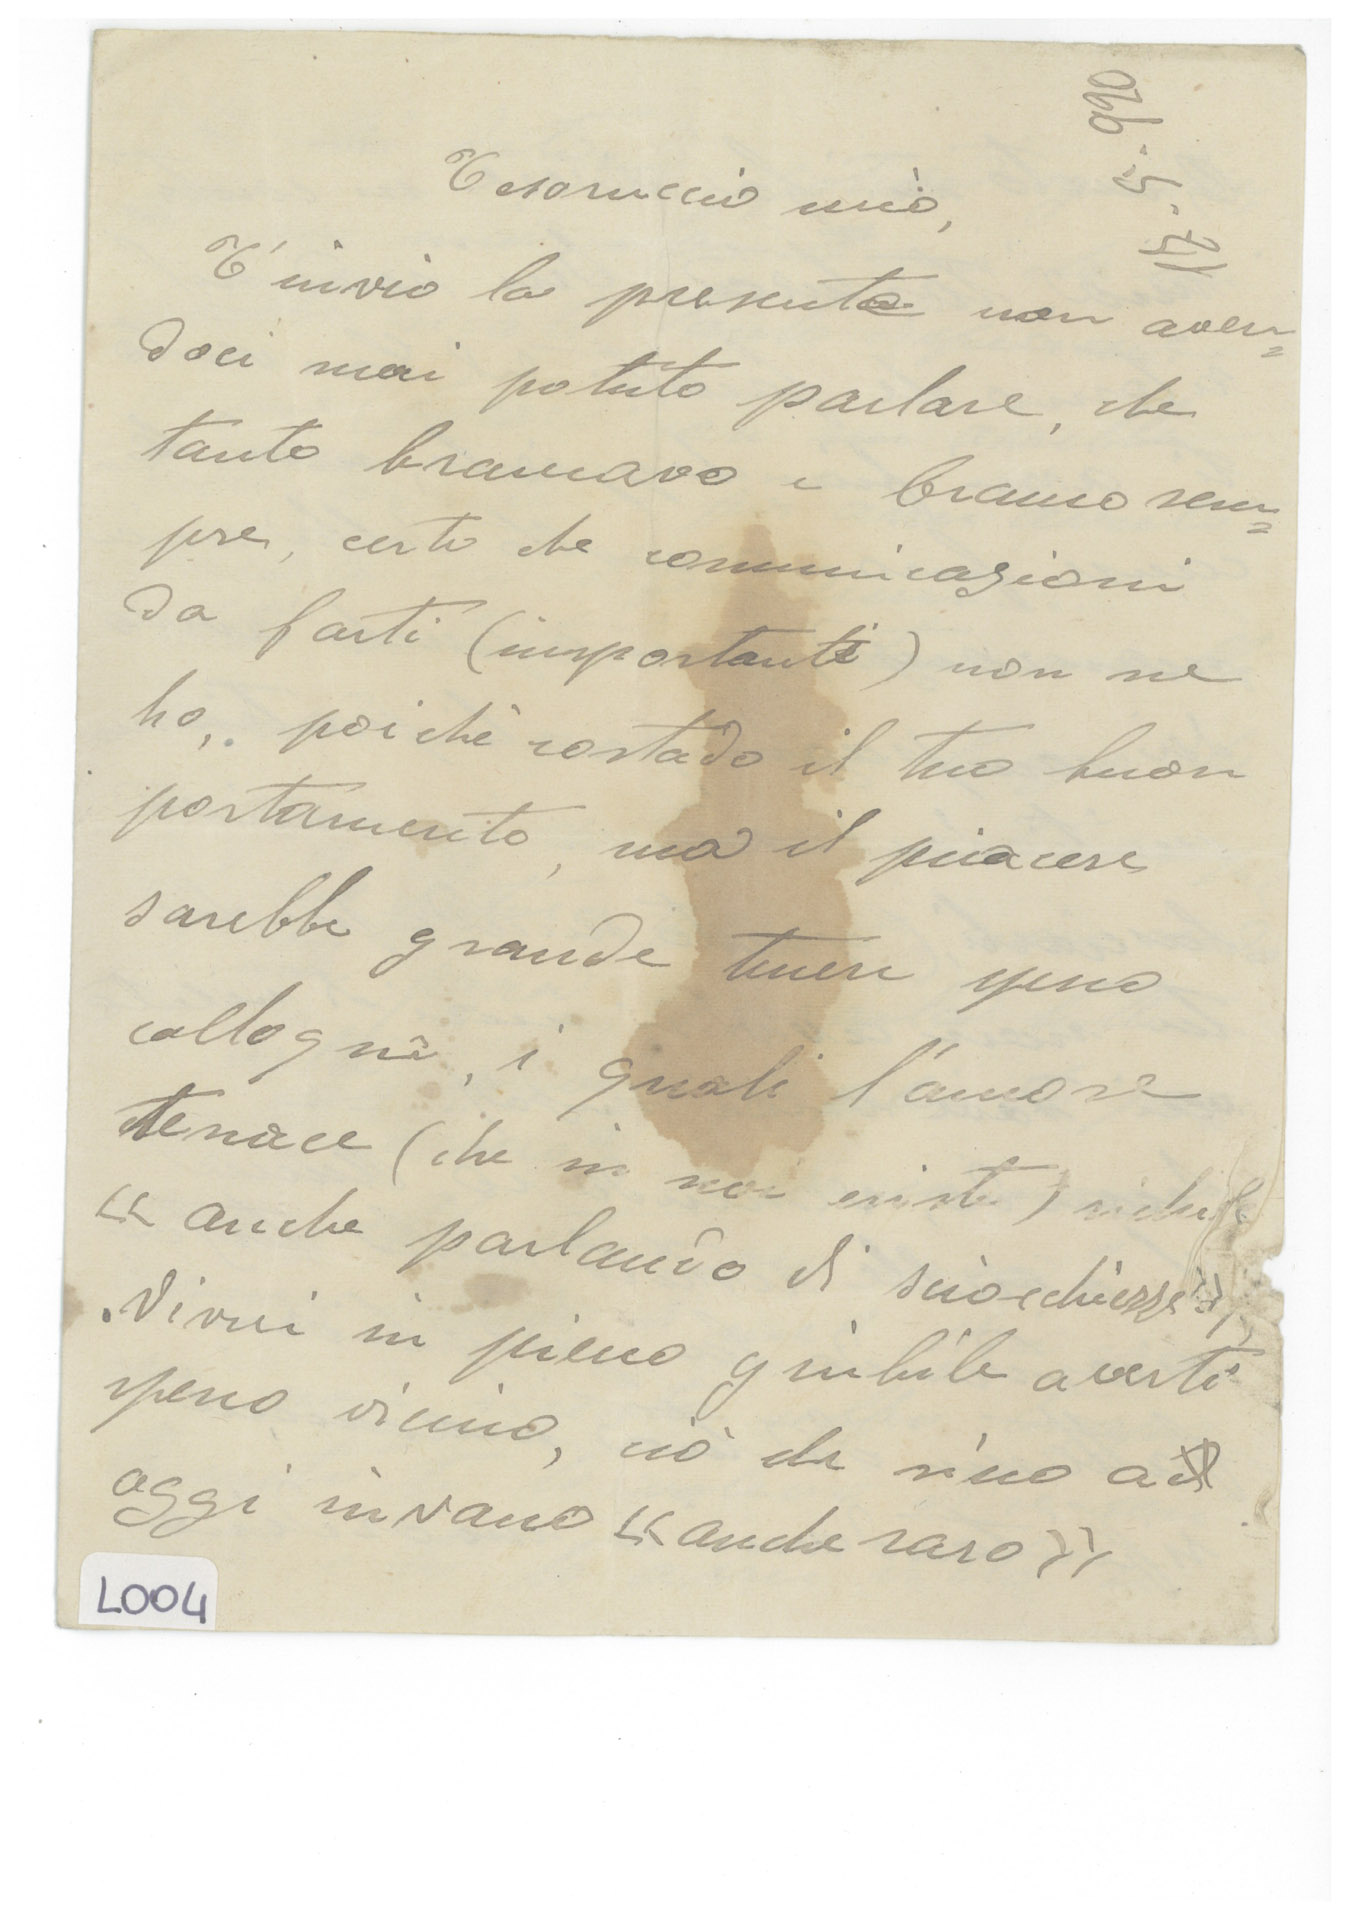 15.5.920
Tesoruccio mio,
T'invio la presente non aven=
doci mai potuto parlare, che
tanto bramavo e bramo sem=
pre, certo che comunicazioni
da farti (importanti) non ne
ho, poichè costado il tuo buon
portamento, ma il piacere
sarebbe grande tenere spesso
collogni, i quali l'amore
tenace (che in noi existe) richiede
"anche parlando di sciocchezze",
Vivrei in pieno giubilo averti
spesso vicino, ciò che sino ad
oggi invano "anche raro"
L004